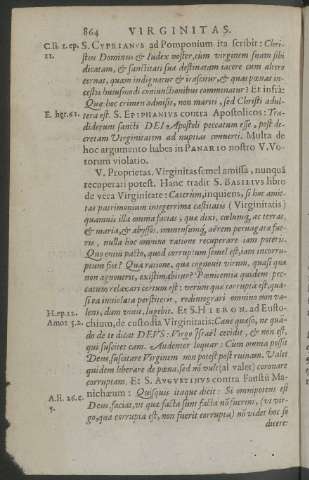 864 VIRGINITAS.
C. si. 1. ep. S. CYPRIANVS ad Pomponium ita scribit: Chri-
11. stus Dominus & Iudex noster, cum virginem suam sibi
dicatam, & sanctitati suæ destinatam iacere cum altero
cernat, quam indignatur & irascitur, & quas pœnas in-
cestis huiusmodi coniunctionibus comminatur? Et infrà:
Quæ hoc crimen admisit, non mariti, sed Christi adul-
E. hęr. 61. tera est. S. EPIPHANIVS contra Apostolicos: Tra-
diderunt sancti DEI Apostoli peccatum esse, post de-
cretam Virginitatem ad nuptias conuerti. Multa de
hoc argumento habes in PANARIO nostro V. Vo-
torum violatio.
V. Proprietas. Virginitas semel amissa, nunquā
recuperari potest. Hanc tradit S. BASILIVS libro
de vera Virginitate: Cæterùm, inquiens, si hoc anic-
tas patrimonium integerrima castitatis (Virginitatis)
quamuis illa omnia faciat, quæ dixi, cœlumq́, ac terras,
& maria, & abyssos, omnemq́umq́, aërem peruagata fue-
ris, nulla hoc omnino ratione recuperare iam poteris.
Quo enim pacto, quod corruptum semel est, iam incorru-
ptum fiat? Qua ratione, quæ cognouit virum, quasi quæ
non agnouerit, existimabitur? Pœnitentia quidem pec-
catum relaxari certum est: verum quæ corrupta est, qua-
si vera inuiolata perstiterit, redintegrari omnino non va-
H. ep. 22. lens, dum viuit, lugebit. Et S. HIERON. ad Eusto-
Amos 5.2. chium, de custodia Virginitatis: Caue quæso, ne quā-
do de te dicat DEVS: Virgo Israël cecidit, & non est,
qui suscitet eam. Audenter loquar: Cum omnia possit
Deus, suscitare Virginem non potest post ruinam. Valet
quidem liberare de pœna, sed nō vult (al valet) coronare
corruptam. Et S. AVGVSTINVS contra Faustū Ma-
A. li. 26. c. nichæum: Quisquis itaque dicit: Si omnipotens est
5. Deus, faciat, vt quæ facta sunt facta nō fuerint, (vt vir-
go, quæ corrupta est, non fuerit corrupta) nō videt hoc se
dicere: